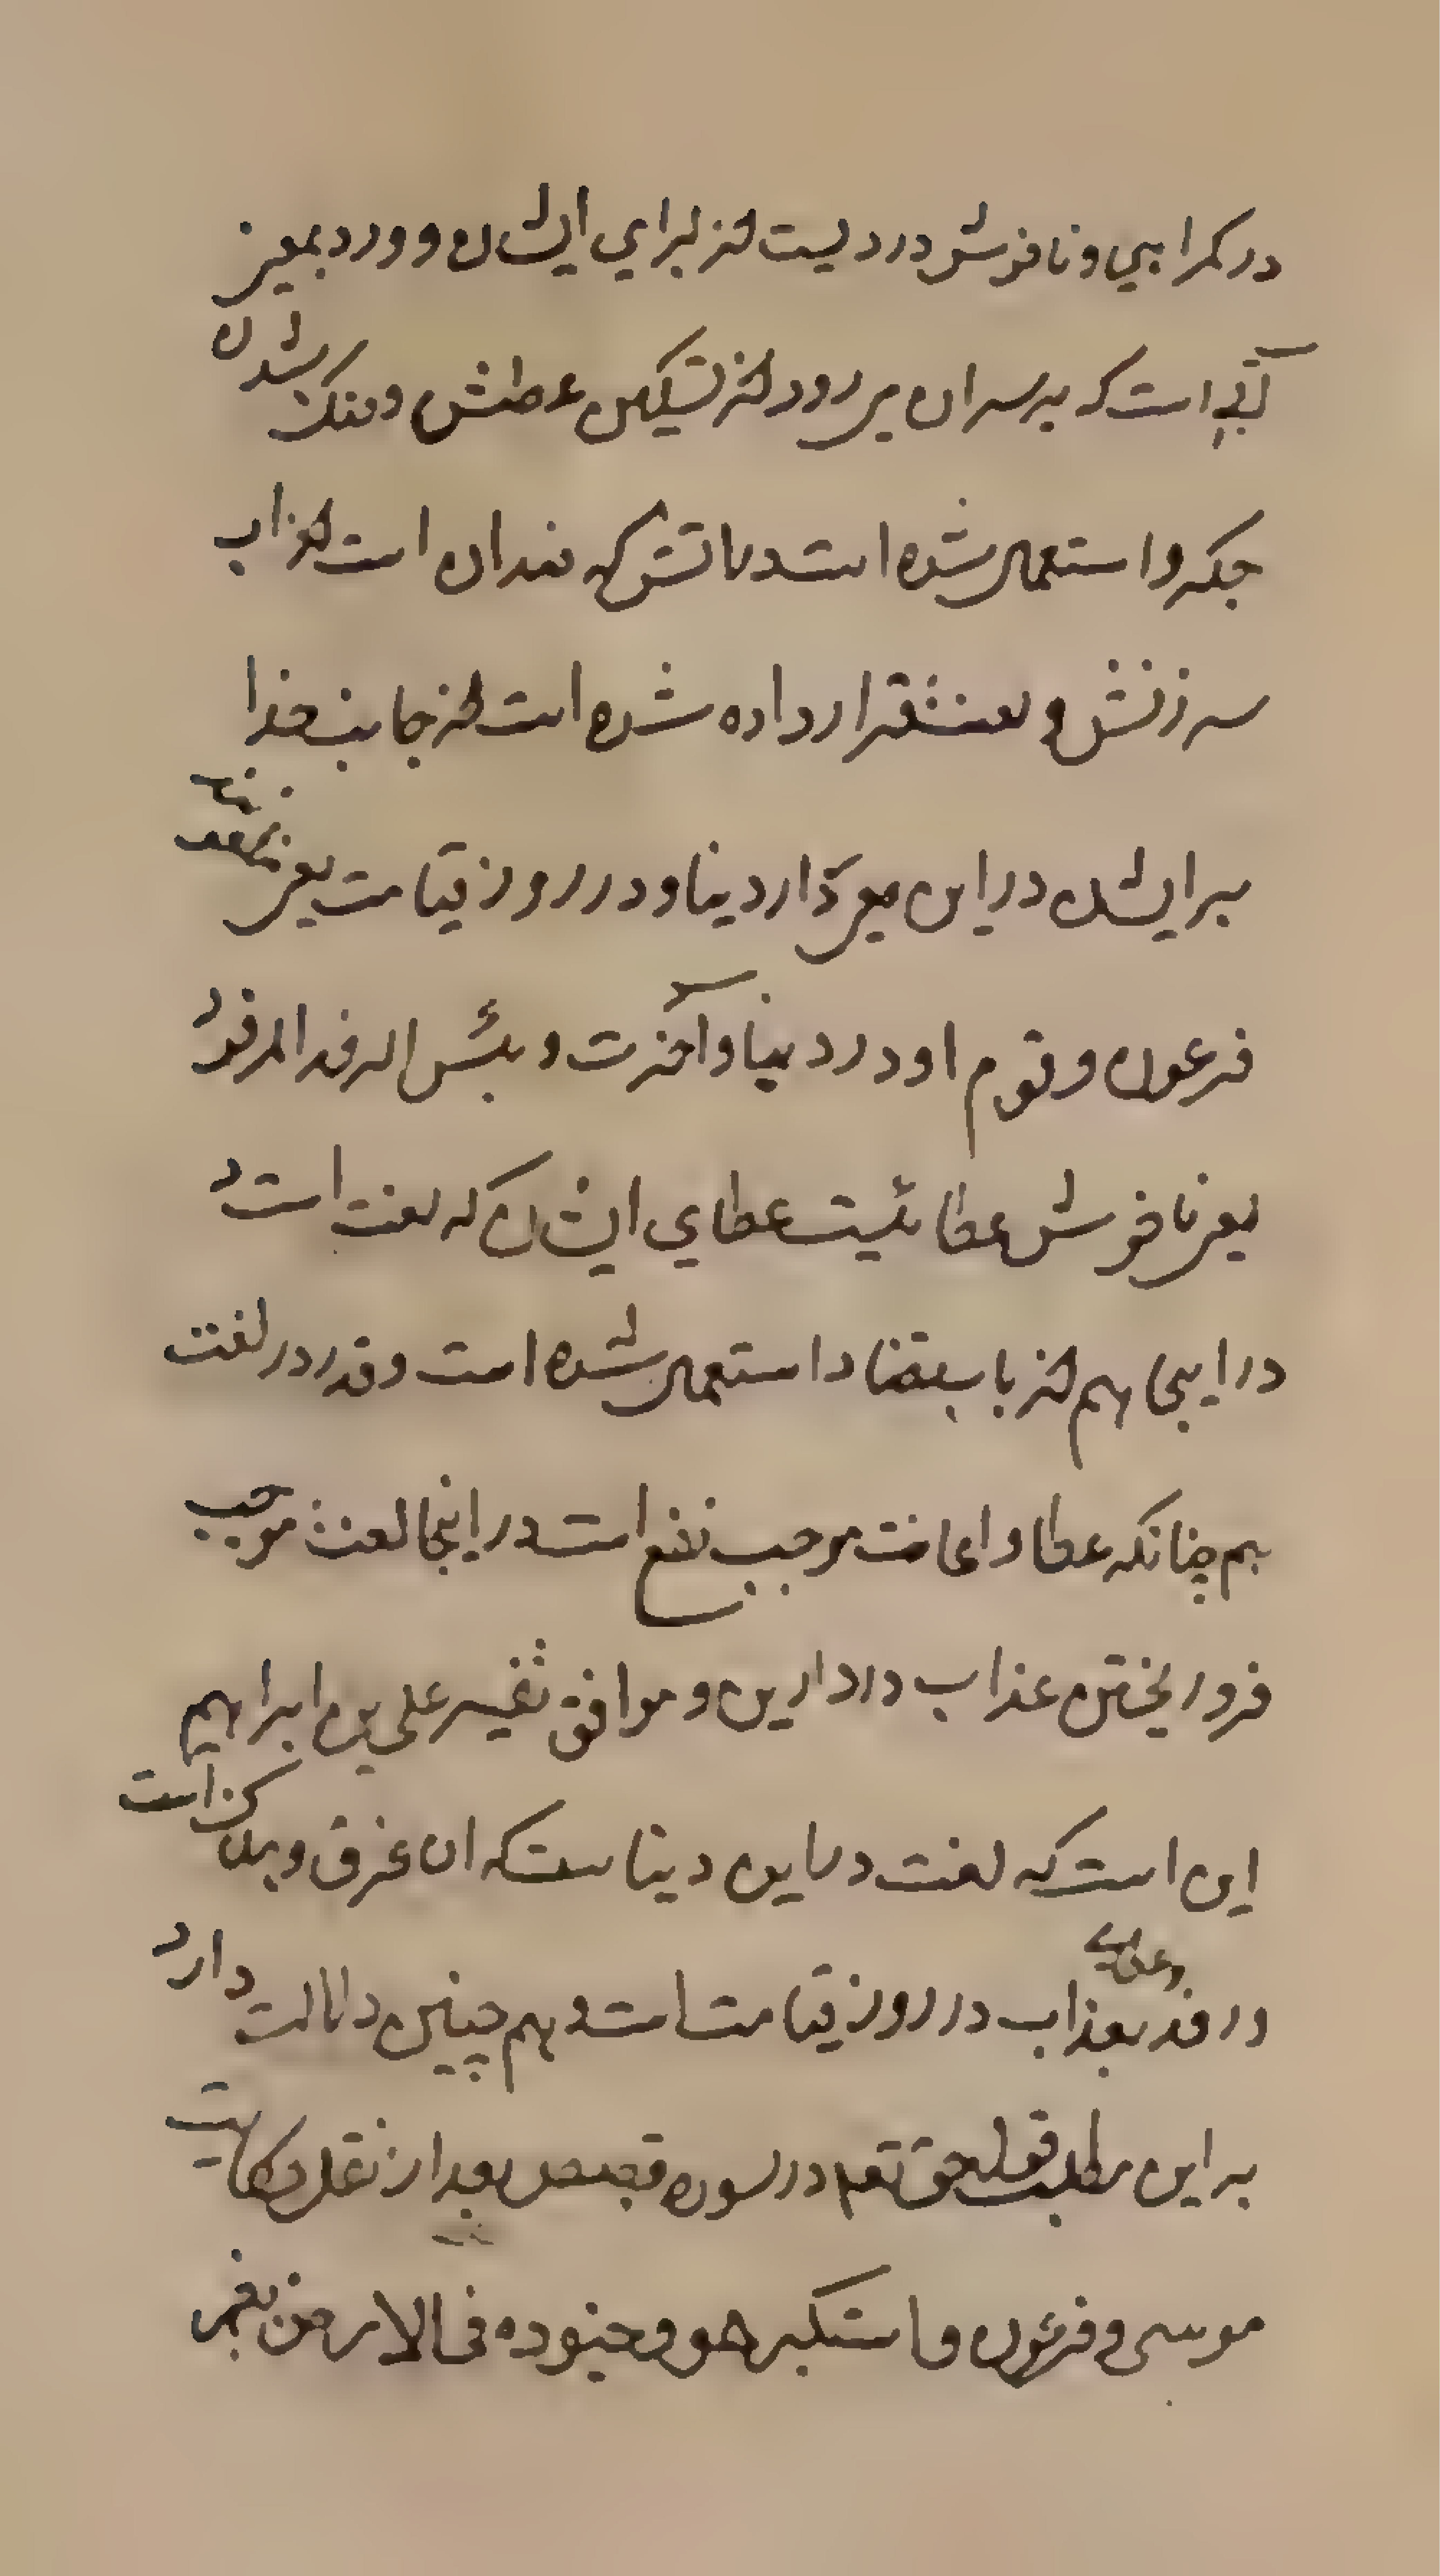 در کمراهی و ناخوش دردیست از برای ایشان و ورد بمعنی
آبی است که بر سر ان میرود از تسکین عطش و خنک شدن
جکر و استعمال شده است در اتش که ضد ان است از باب
سرزنش و لعنت قرار داده شده است از جانب خدا
بر ایشان در این یعنی در دار دنیا و در روز قیامت یعنی
فرعون و قوم او در دنیا و آخرت و بئس الرفد المرفود
یعنی ناخوش عطائیست عطای ایشان که لعنت است و
در اینجا هم از باب بضاد استعمال شده است و قدر در لغت
هم چنانکه عطا و اعانت موجب نفع است در اینجا لعنت موجب
فرو ریختن عذاب در دارین و موافق تفسیر علی بن ابراهیم
این است که لعنت در این دنیاست که ان غرق و است
و رفد بعذاب در روز قیامت است و هم چنین دلالت دارد
بر این مطلب قول حق تعم در سوره قصص بعد از نقل حکایت
موسی و فرعون و استکبر هو و جنوده فی الارض بغیر